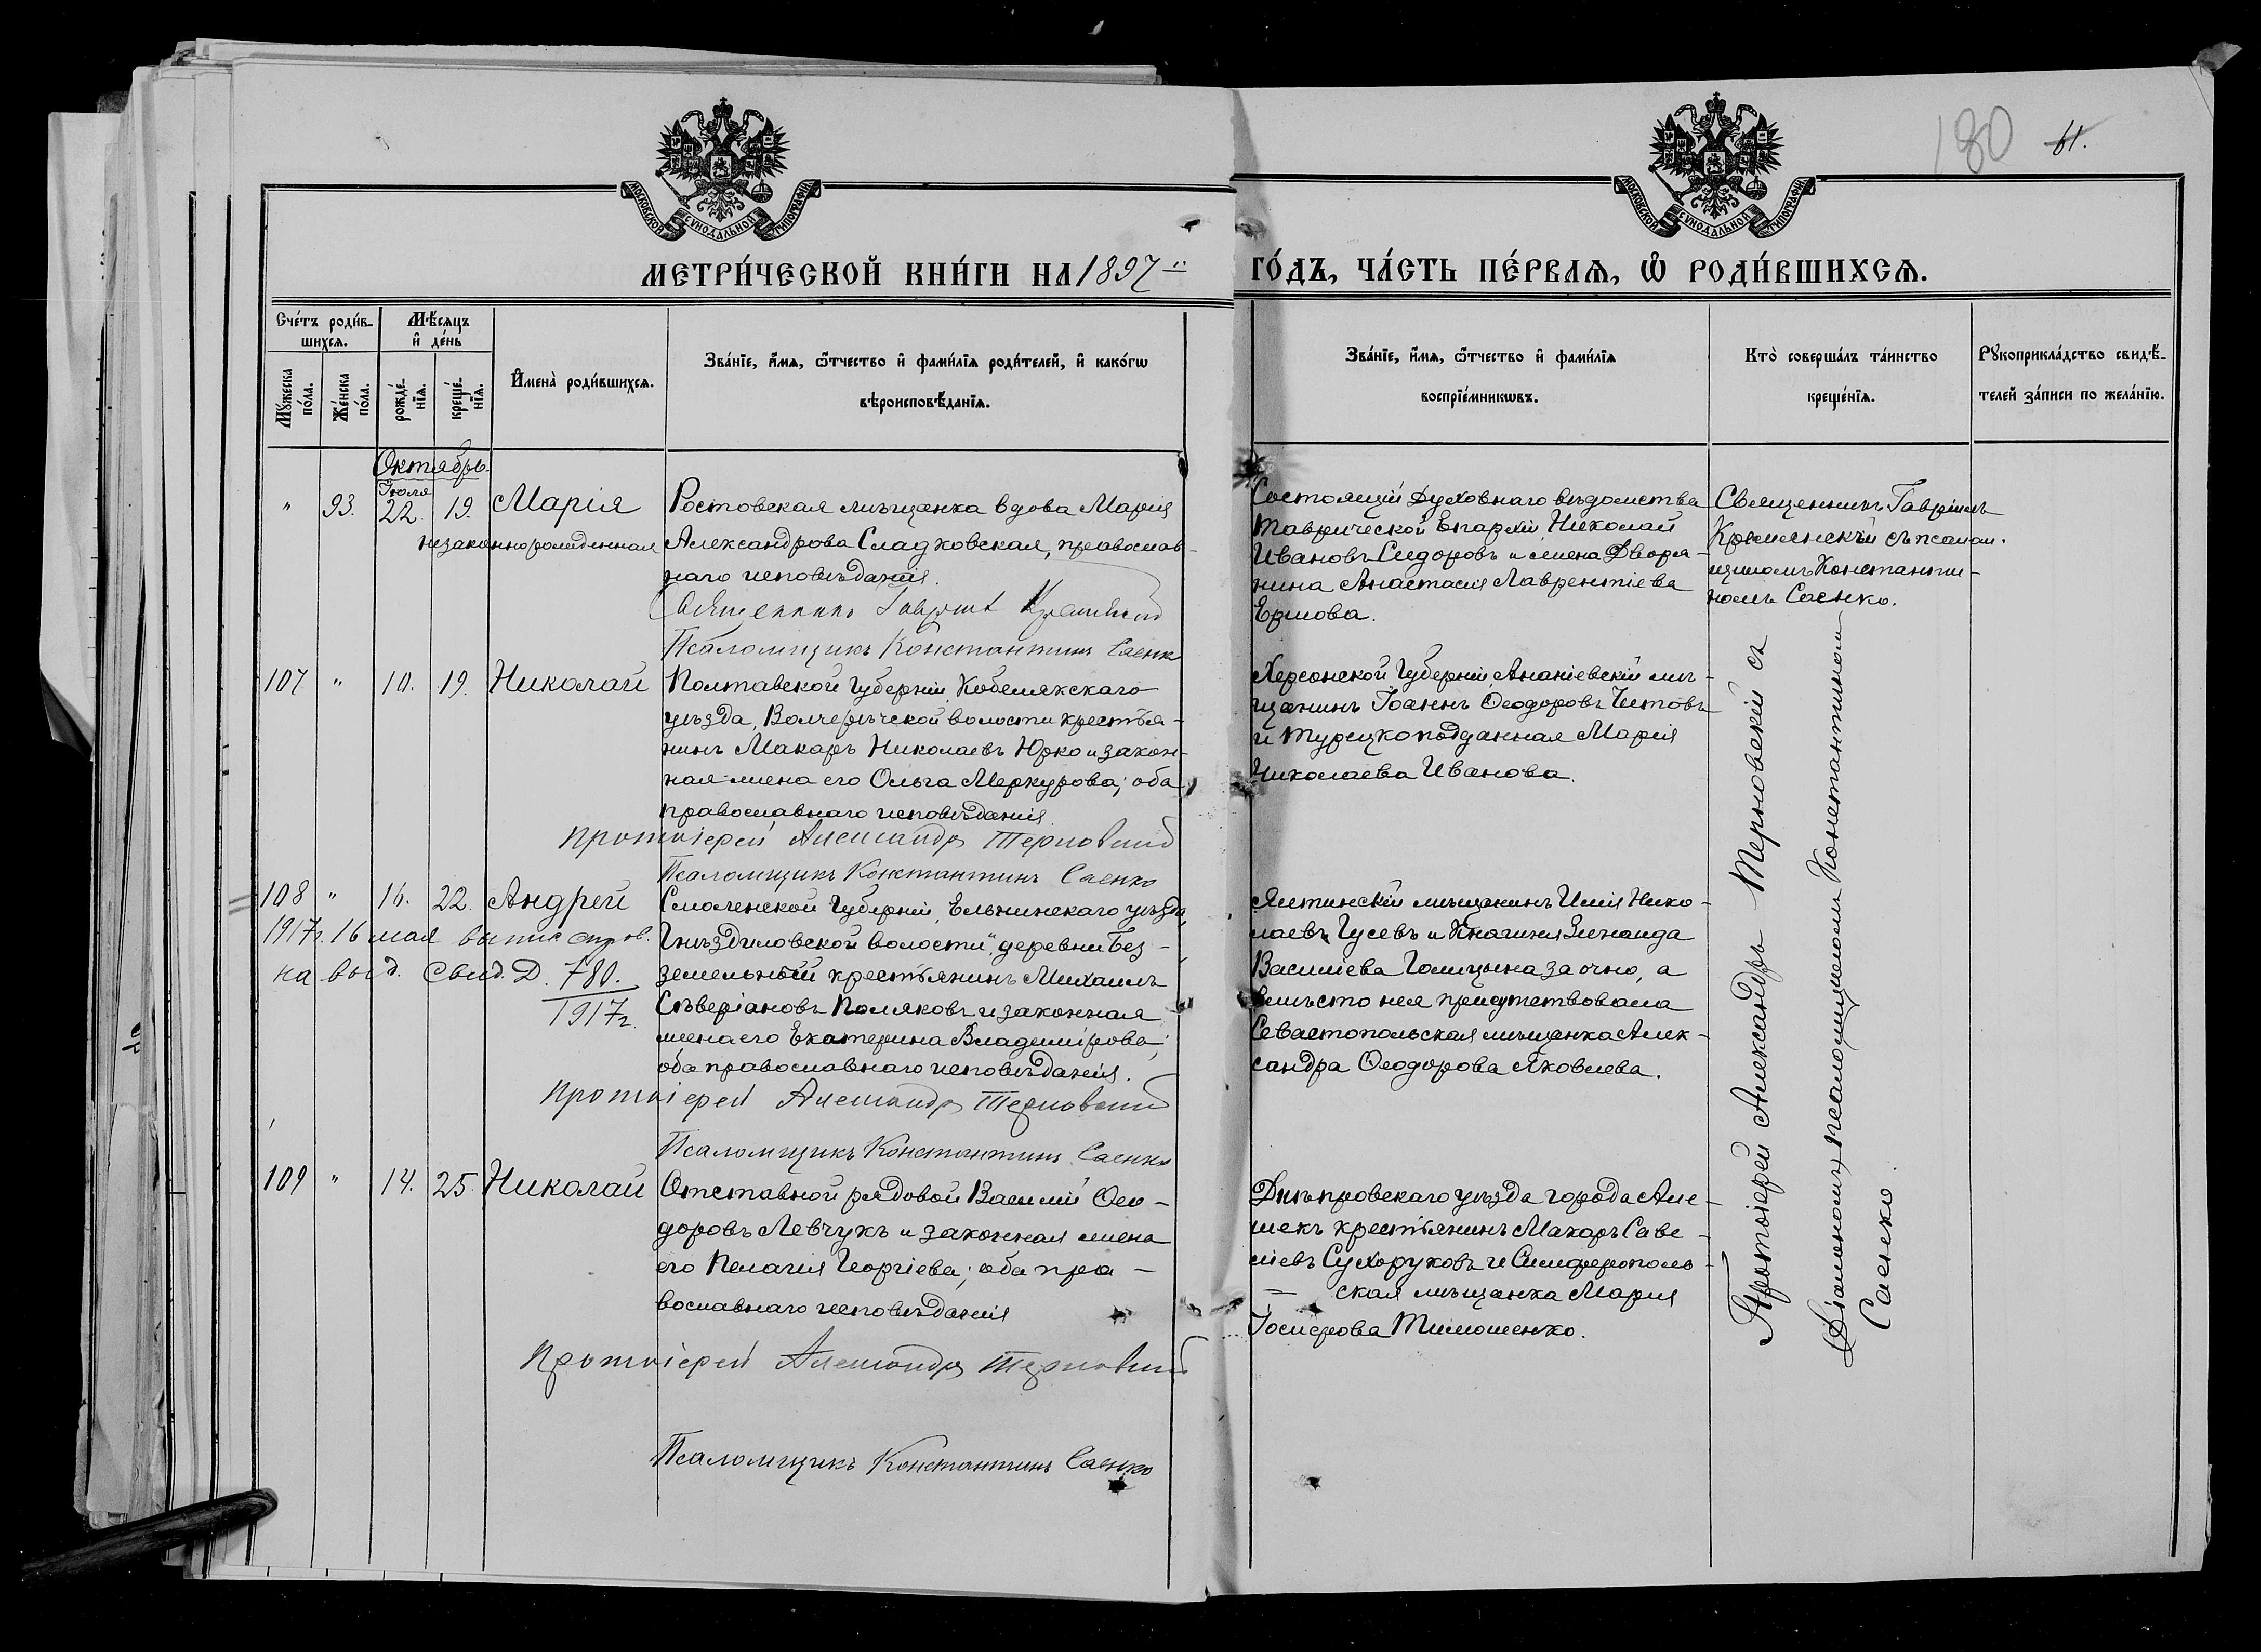 180 61.
МОСКОВСКОЙ СѴНОДАЛЬНОЙ ТИПОГРАФІИ
МОСКОВСКОЙ СѴНОДАЛЬНОЙ ТИПОГРАФІИ
МЕТРИ́ЧЕСКОЙ КНИ́ГИ НА 1897 ГО́ДЪ, ЧА́СТЬ ПЕ́РВАѦ, Ѽ РОДИ́ВШИХСѦ.
Сче́тъ роди́в-
шихсѧ.
Мѣ́сяцъ
и҆ де́нь
Мꙋ́жеска по́ла.
Же́нска по́ла.
рожде́-
нїѧ.
креще́-
нїѧ.
И҆мена̀ роди́вшихсѧ.
Зва́нїе, и҆́мѧ, ѻ҆́тчество и҆ фами́лїѧ роди́телей, и҆ како́гѡ
вѣроисповѣ́данїѧ.
Зва́нїе, и҆́мѧ, ѻ҆́тчество и҆ фами́лїѧ
воспрїе́мникѡвъ.
Кто̀ соверша́лъ та́инство
креще́нїѧ.
Рꙋкоприкла́дство свидѣ́-
телей за́писи по жела́нїю.
Октябрь.
" 93. Іюля 22. 19. Марія
незаконнорожденная
Ростовская мѣщанка вдова Марія
Александрова Сладковская, православ-
наго исповѣданія.
Священникъ Гавріилъ Краменскій
Псаломщикъ Константинъ Саенко
Состоящій духовнаго вѣдомства
Таврической Епархіи, Николай
Ивановъ Сидоровъ и жена Дворя-
нина Анастасія Лаврентіева
Ермова.
Священникъ Гавріилъ
съ псалом-
щикомъ Константи-
номъ Саенко.
107 " 10. 19. Николай
Полтавской Губерніи, Кобелякскаго
уѣзда, волости крестья-
нинъ Макаръ Николаевъ Юрко и закон-
ная жена его Ольга Меркурова; оба
православнаго исповѣданія.
Протоіерей Александръ Терновскій
Псаломщикъ Константинъ Саенко
Херсонской Губерніи, Ананіевскій мѣ-
щанинъ Іоаннъ Ѳеодоровъ Чистовъ
и Турецкоподданная Марія
Николаева Иванова.
108 " 16. 22. Андрей
1917г. 16 мая
на выд. свид. Д. 780.
1917г.
Смоленской Губерніи, Ельнинскаго уѣзда,
Гнѣздиловской волости, деревни Без-
земельный крестьянинъ Михаилъ
Сѣверіановъ Поляковъ и законная
жена его Екатерина Владимірова;
оба православнаго исповѣданія.
Протоіерей Александръ Терновскій
Псаломщикъ Константинъ Саенко
Ялтинскій мѣщанинъ Илія Нико-
лаевъ Гусевъ и Княгиня Зинаида
Василіева Голицына заочно, а
вмѣсто нея присутствовала
Севастопольская мѣщанка Алек-
сандра Ѳеодорова Яковлева.
109 " 14. 25. Николай
Отставной рядовой Василій Ѳео-
доровъ Левчукъ и законная жена
его Пелагія Георгіева; оба пра-
вославнаго исповѣданія
Протоіерей Александръ Терновскій
Псаломщикъ Константинъ Саенко
Днѣпровскаго уѣзда города Але-
шекъ крестьянинъ Макаръ Саве-
ліевъ Сухоруковъ и Симферополь-
ская мѣщанка Марія
Іосифова Тимошенко.
Протоіерей Александръ Терновскій съ
Діакономъ псаломщикомъ Константиномъ
Саенко.